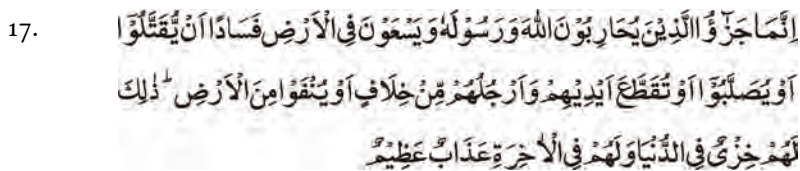 17. اِنَّمَا جَزٰٓؤُا الَّذِيْنَ يُحَارِبُوْنَ اللّٰهَ وَرَسُوْلَهٗ وَيَسْعَوْنَ فِى الْاَرْضِ فَسَادًا اَنْ يُّقَتَّلُوْٓا
اَوْ يُصَلَّبُوْٓا اَوْ تُقَطَّعَ اَيْدِيْهِمْ وَاَرْجُلُهُمْ مِّنْ خِلَافٍ اَوْ يُنْفَوْا مِنَ الْاَرْضِ ؕ ذٰلِكَ
لَهُمْ خِزْىٌ فِى الدُّنْيَا وَلَهُمْ فِى الْاٰخِرَةِ عَذَابٌ عَظِيْمٌ